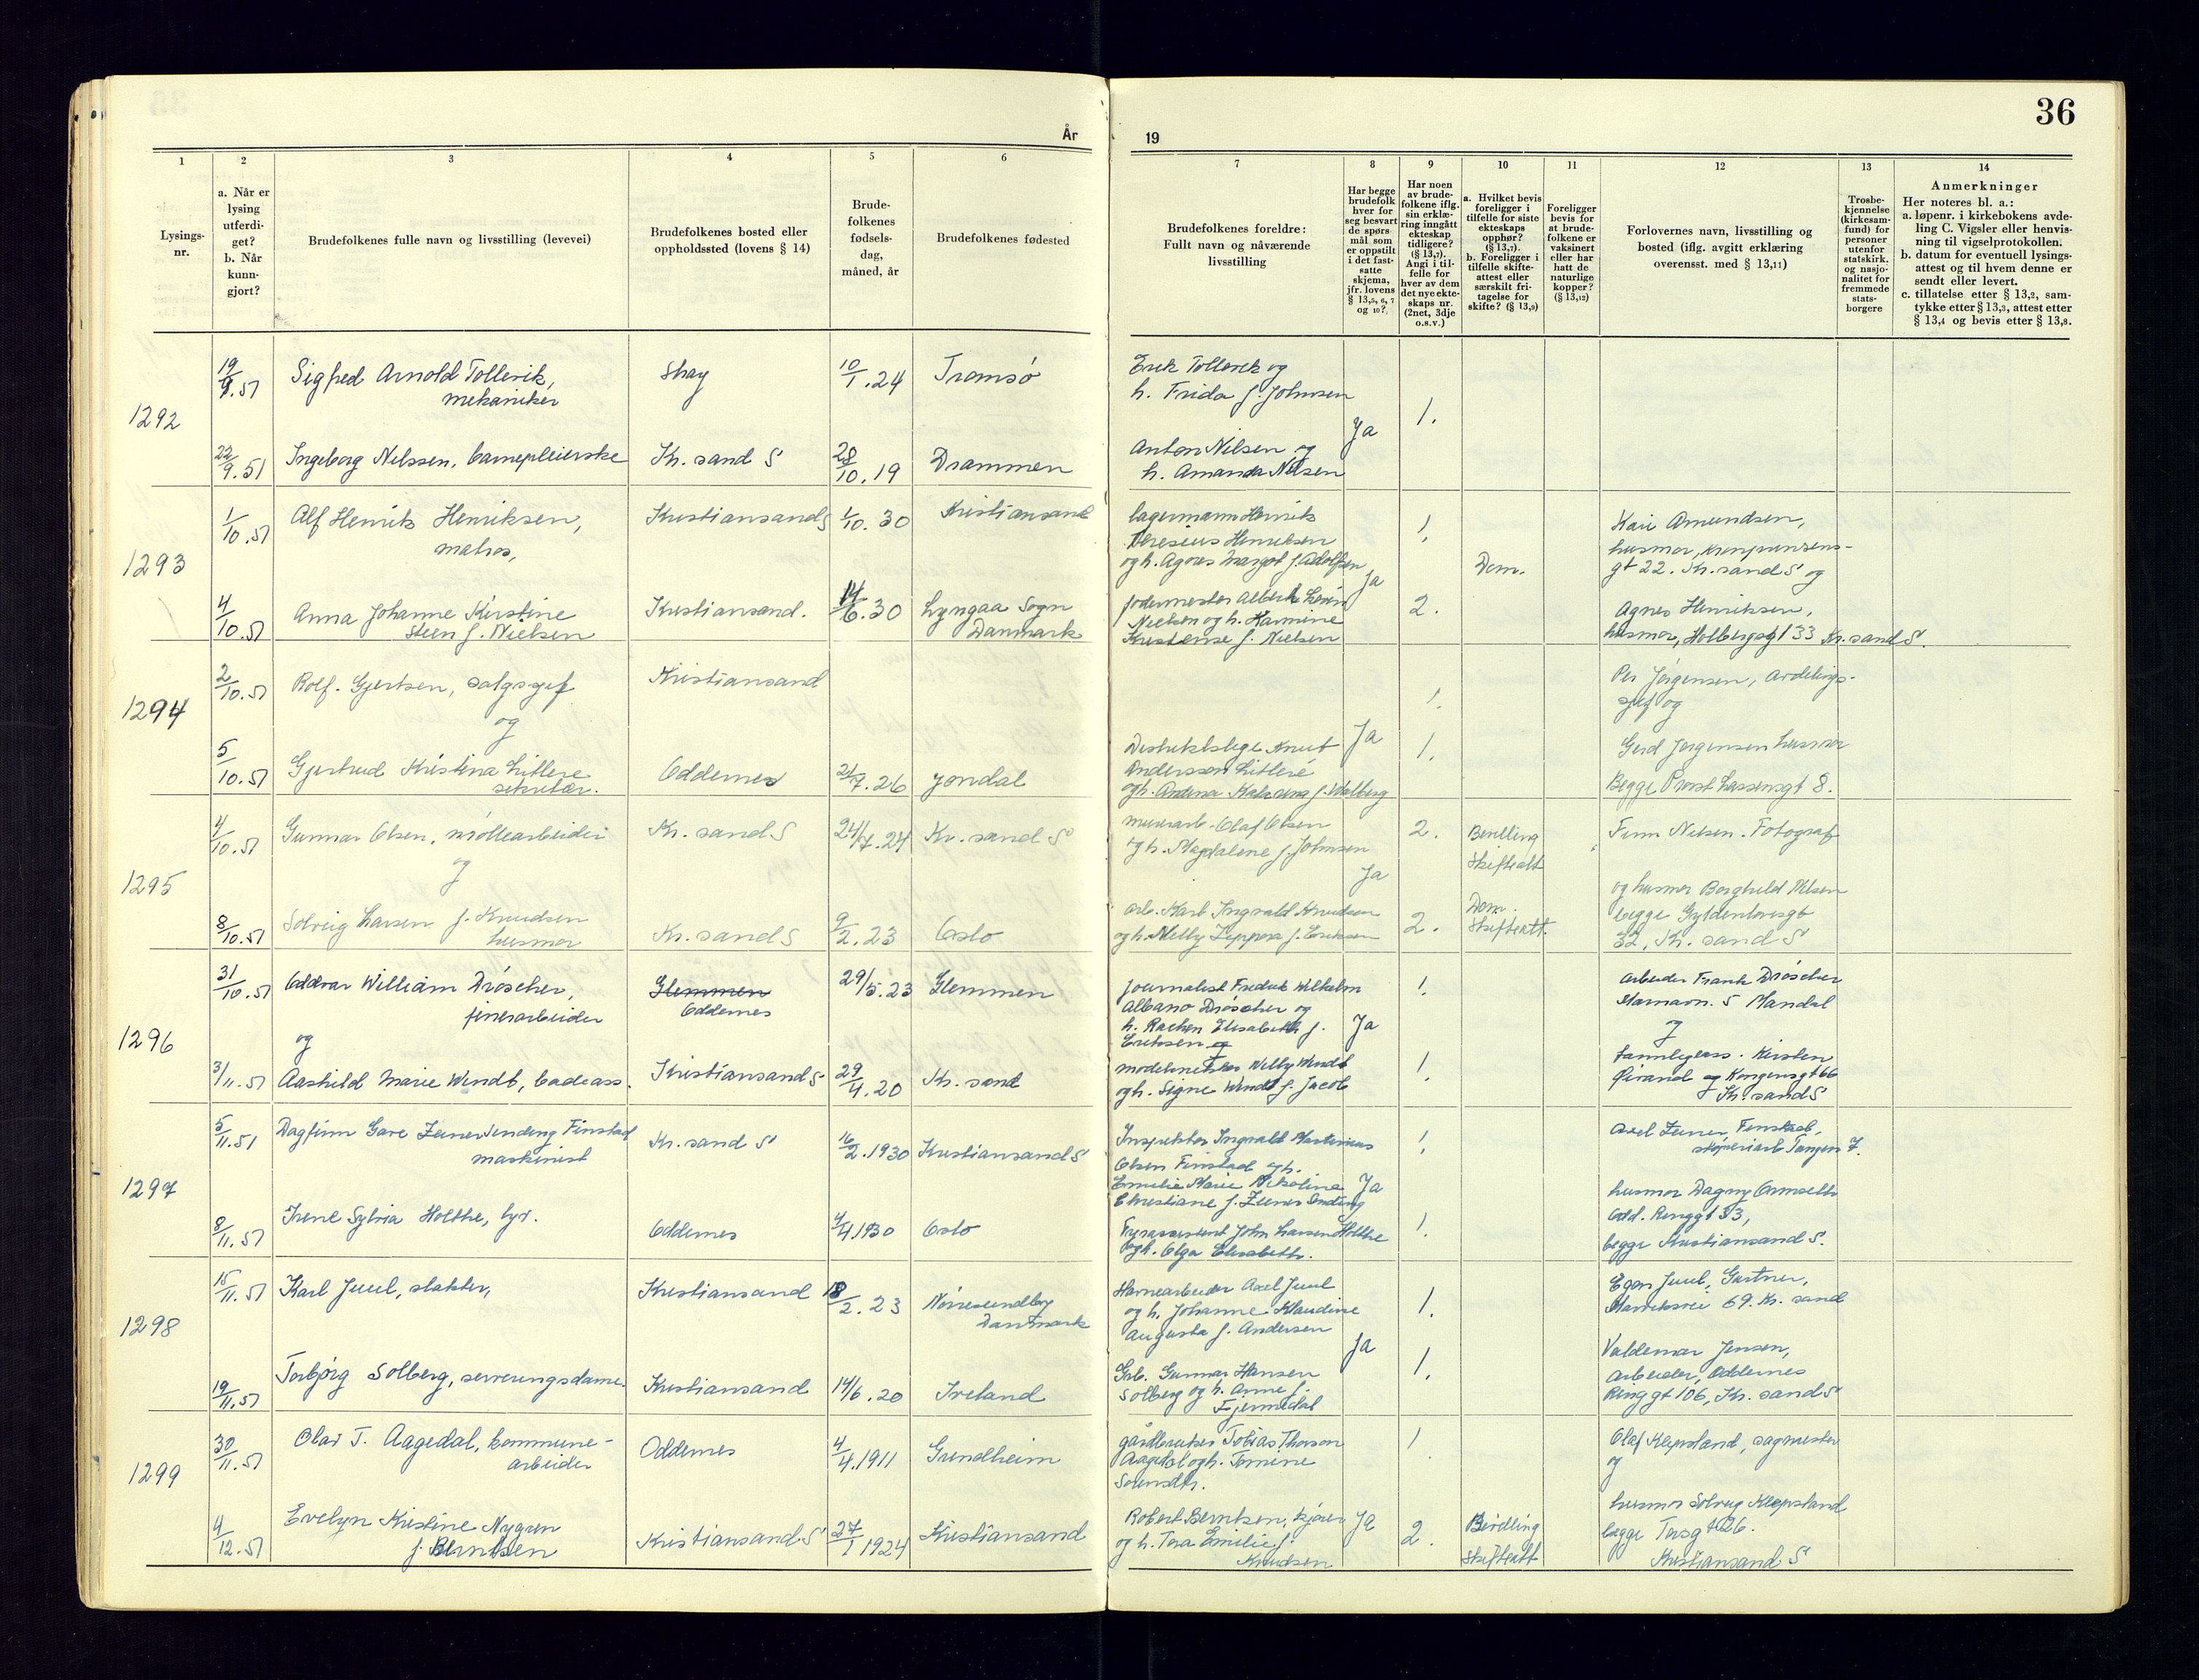 36
År
19
1
2
3
4
5
6
7
8
9
10
11
12
13
14
Lysings-
nr.
a. Når er
lysing
utferdi-
get?
b. Når
kunn-
gjort?
Brudefolkenes fulle navn og livsstilling (levevei)
Brudefolkenes bosted eller
oppholdssted (lovens § 14)
Brude-
folkenes
fødsels-
dag,
måned, år
Brudefolkenes fødested
Brudefolkenes foreldre:
Fullt navn og nåværende
livsstilling
Har begge
brudefolk
hver for
seg besvart
de spørs-
mål som
er oppstilt
i det fast-
satte
skjema,
jfr. lovens
§ 13,5, 6, 7
og 10?
Har noen
av brude-
folkene iflg.
sin erklæ-
ring inngått
ekteskap
tidligere?
(§ 13,7).
Angi i til-
felle for
hver av dem
det nye ekte-
skaps nr.
(2net, 3dje
o.s.v.)
a. Hvilket bevis
foreligger i
tilfelle for siste
ekteskaps
opphør?
(§ 13,7).
b. Foreligger i
tilfelle skifte-
attest eller
særskilt fri-
tagelse for
skifte? (§ 13,9)
Foreligger
bevis for
at brude-
folkene er
vaksinert
eller har
hatt de
naturlige
kopper?
(§ 13,12)
Forlovernes navn, livsstilling og
bosted (iflg. avgitt erklæring
overensst. med § 13,11)
Trosbe-
kjennelse
(kirkesam-
fund) for
personer
utenfor
statskirk.
og nasjo-
nalitet for
fremmede
stats-
borgere
Anmerkninger
Her noteres bl. a.:
a. løpenr. i kirkebokens avde-
ling C. Vigsler eller henvis-
ning til vigselprotokollen.
b. datum for eventuell lysings-
attest og til hvem denne er
sendt eller levert.
c. tillatelse etter § 13,2, sam-
tykke etter § 13,3, attest etter
§ 13,4 og bevis etter § 13,8.
1292
19/9.51
Sigfred Arnold Tollerik,
mekaniker
Skøy
10/1.24
Tromsø
Erik Tollerik og
h. Frida f. Johnsen
Ja
1.
22/9.51
Ingeborg Nilssen, barnepleierske
Kr. sand S
28/10.19
Drammen
Anton Nilsen og
h. Amanda Nilsen
1293
1/10.51
Alf Henrik Henriksen,
matros,
Kristiansand S
1/10.30
Kristiansand
lagermann Henrik
Theresius Henriksen
og h. Agnes Margot f. Adolfsen
Ja
1.
Dom.
Kari Amundsen,
husmor, Kronprinsens-
gt 22. Kr. sand S og
4/10.51
Anna Johanne Kirstine
Steen f. Nielsen
Kristiansand.
14/6.30
Lyngaa Sogn
Danmark
jodemester Albert
Nielsen og h. Karmine
Kristense f. Nielsen
2.
Agnes Henriksen,
husmor, Holbergsgt 33 Kr. sand S.
1294
2/10.51
Rolf Gjertsen, salgssjef
og
Kristiansand
1.
Per Jørgensen, avdelings-
sjef og
5/10.51
Gjertrud Kristina Litlere
sekretær.
Oddernes
21/7.26
Jondal
Distriktslege Knut
Andersson Litleré
og h. Andrea Katarina f. Valberg
Ja
1.
Gerd Jørgensen husmor
Begge Prost Lassensgt 8.
1295
4/10.51
Gunnar Olsen, møllearbeider
og
Kr. sand S
24/7.24
Kr. sand S
murerarb. Olaf Olsen
og h. Magdalene f. Johnsen
Ja
2.
Bevilling
Skifteatt
Finn Nilsen. Fotograf
8/10.51
Solveig Larsen f. Knudsen
husmor
Kr. sand S
9/2.23
Oslo
arb. Karl Ingvald Knudsen
og h. Nelly Zippora f. Eriksen
2.
Dom.
Skifteatt.
og husmor Borghild Nilsen
begge Gyldenløvesgt
32, Kr. sand S
1296
31/10.51
Oddvar William Dröscher,
finerarbeider
og
Glemmen
Oddernes
29/5.23
Glemmen
Journalist Fredrik Wilhelm
Albano Dröscher og
h. Rachen Elisabeth f.
Eriksen og
Ja
1.
arbeider Frank Dröscher
Stamavn. 5 Mandal
og
3/11.51
Aashild Marie Wendt, badeass.
Kristiansand S
29/4.20
Kr. sand
modellmester Willy Wendt
og h. Signe Wendt f. Jacob
1.
tannlegeass. Kirsten
Øirand og Kongensgt 66
Kr. sand S
1297
5/11.51
Dagfinn Gare Zeiner Sending Finstad
maskinist
Kr. sand S
16/2.1930
Kristiansand S
Inspektør Ingvald Martinius
Olsen Finstad og h.
Emilie Marie Nikoline
Christiane f. Zeiner Sending
Ja
1.
Axel Zeiner Finstad,
skøperiarb Tangen 7.
8/11.51
Irene Sylvia Holthe, syr.
Oddernes
4/4.1930
Oslo
Fyrassistent John Larsen Holthe
og h. Olga Elisabeth.
1.
husmor Dagny Ormseth
Odd. Ringgt 33,
begge Kristiansand S.
1298
15/11.51
Karl Juul, slakter,
Kristiansand
18/2.23
Nørresundby
Danmark
Havnearbeider Axel Juul
og h. Johanne Klaudine
Augusta f. Andersen
Ja
1.
Egon Juul, Gartner,
Marviksvei 69. Kr. sand
19/11.51
Torbjørg Solberg, serveringsdame.
Kristiansand
14/6.20
Iveland
Grb. Gunnar Hansen
Solberg og h. Anne f.
Fjermedal
1.
Valdemar Jensen,
arbeider, Oddernes
Ringgt 106, Kr. sand S
1299
30/11.51
Olav T. Aagedal, kommune-
arbeider
Oddernes
4/4.1911
Grindheim
gårdbruker Tobias Thorson
Aagedal og h. Tomine
Sveinsdtr.
1.
Olaf Klepsland, sagmester
og
4/12.51
Evelyn Kristine Nygren
f. Berntsen
Kristiansand S
27/1 1924
Kristiansand
Robert Berntsen, kjører
og h. Tora Emilie f.
Knudsen
Ja
2.
Bevilling
Skifteatt
husmor Solveig Klepsland
begge Torsgt 26.
Kristiansand S